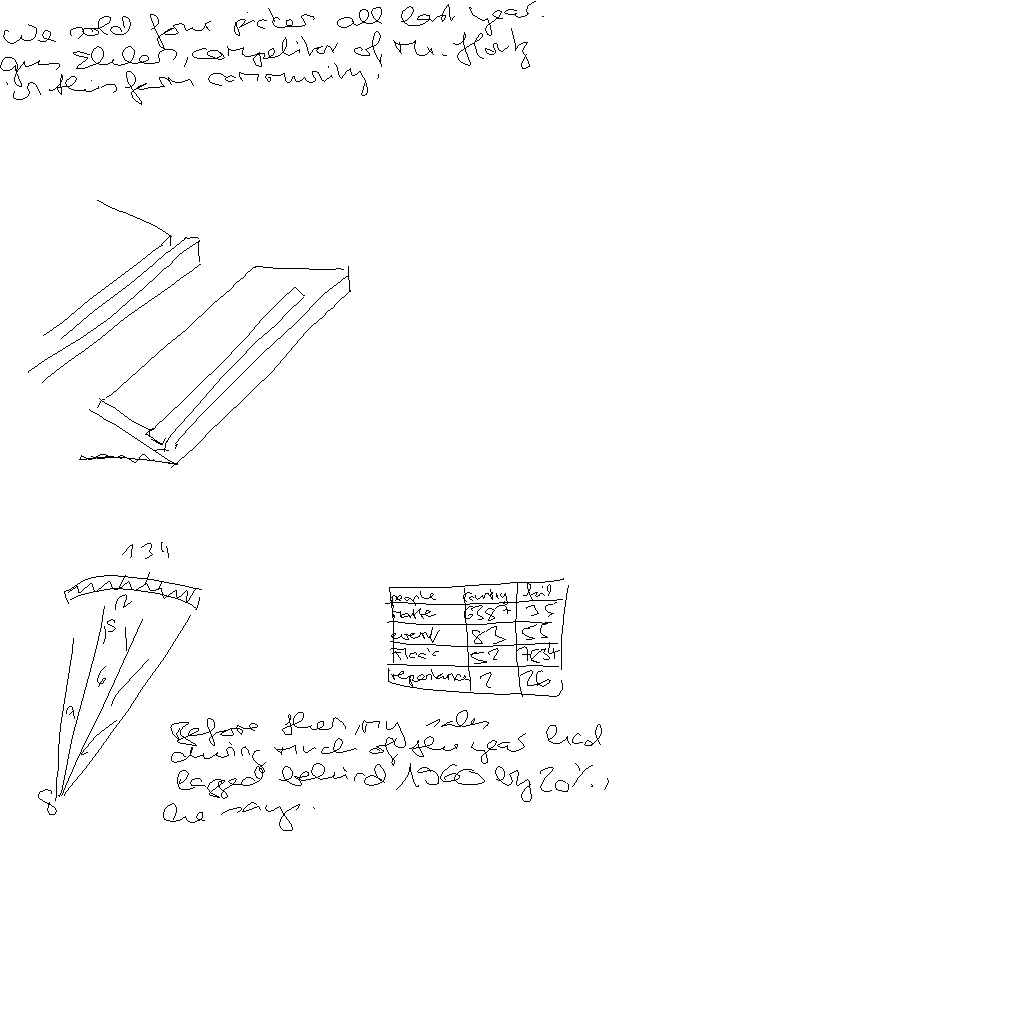 We sold four picker all last year.
Ehlers, competitor of Mr. Hortz
in this farm community.
134
2
5
6
9
8
people country fail
Matte 6387 35
event 83 55
52 7634
2 26
Before then, my sales
during much of the year had
lagged behind 1960 by 20%.,
he says.